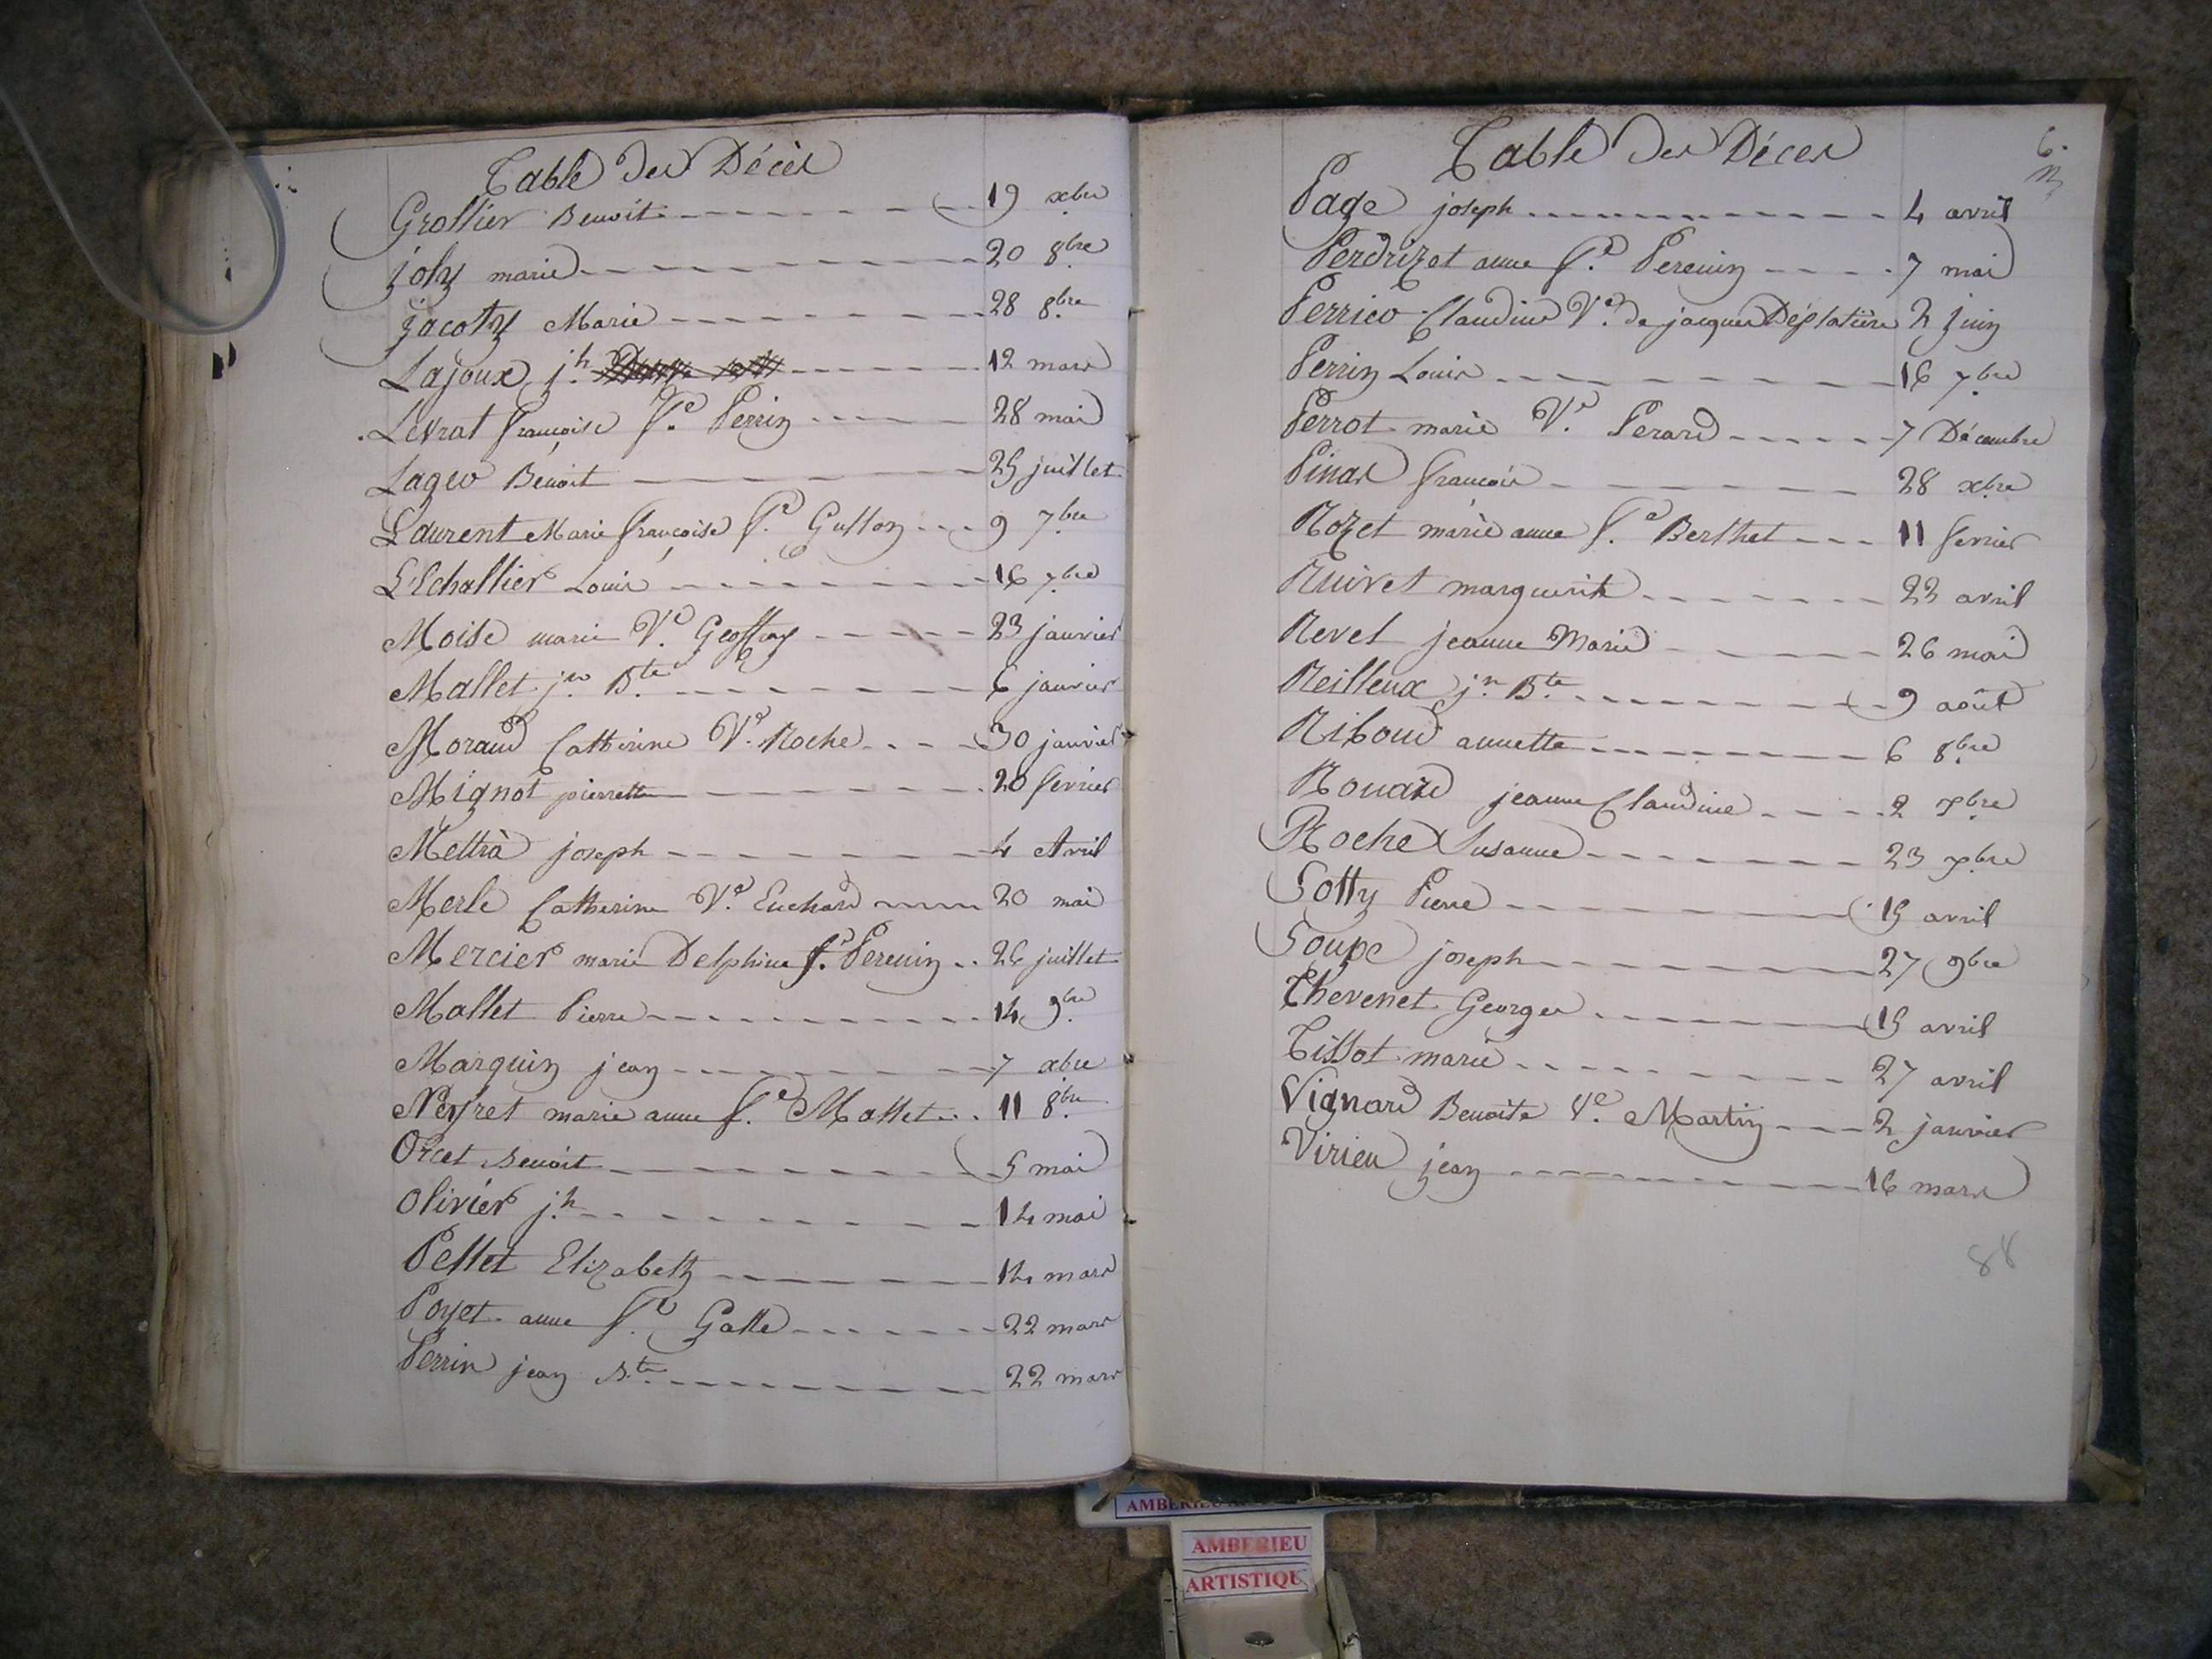 Table des Décès
Grollier Benoit 19 xbre
joly marie 20 8bre
jacoty Marie 28 8bre
Lajoux jh 12 mars
Levrat françoise fe Perrin 28 mai
Lageo Benoit 25 juillet
Laurent Marie françoise fe Gusson 9 7bre
L'Echallier Louis 16 7bre
Moise marie Ve Geoffray 23 janvier
Mallet jn Bte 6 janvier
Moraud Catherine Ve Roche 30 janvier
Mignot pierrette 20 fevrier
Mettrà joseph 4 Avril
Merle Catherine Ve Euchard 20 mai
Mercier marie Delphine fe Perenin 26 juillet
Mallet Pierre 14 9bre
Marquin jean 7 xbre
Neyret marie anne fe Mallet 11 8bre
Orcet Benoit 5 mai
Olivier jh 14 mai
Pellet Elizabeth 14 mars
Poyet anne fe Galle 22 mars
Perrin jean Bte 22 mars
Table des Décès
6.
Page joseph 4 avril
Perdrizet anne fe Perenin 7 mai
Perrico Claudine Ve de jacques Déplatière 2 juin
Perrin Louis 16 7bre
Perrot marie Ve Perard 7 Décembre
Pinar françois 28 xbre
Rozet marie anne fe Berthet 11 fevrier
Ruivet marguerite 22 avril
Revel jeanne Marie 26 mai
Reilleux jn Bte 9 août
Riboud annette 6 8bre
Rouard jeanne Claudine 2 xbre
Roche Susanne 23 xbre
Sotty Pierre 15 avril
Soupe joseph 27 9bre
Thevenet George 15 avril
Tissot marie 27 avril
Vignard Benoite Ve Martin 2 janvier
Virieu jean 16 mars
88
AMBERIEU
AMBERIEU
ARTISTIQU